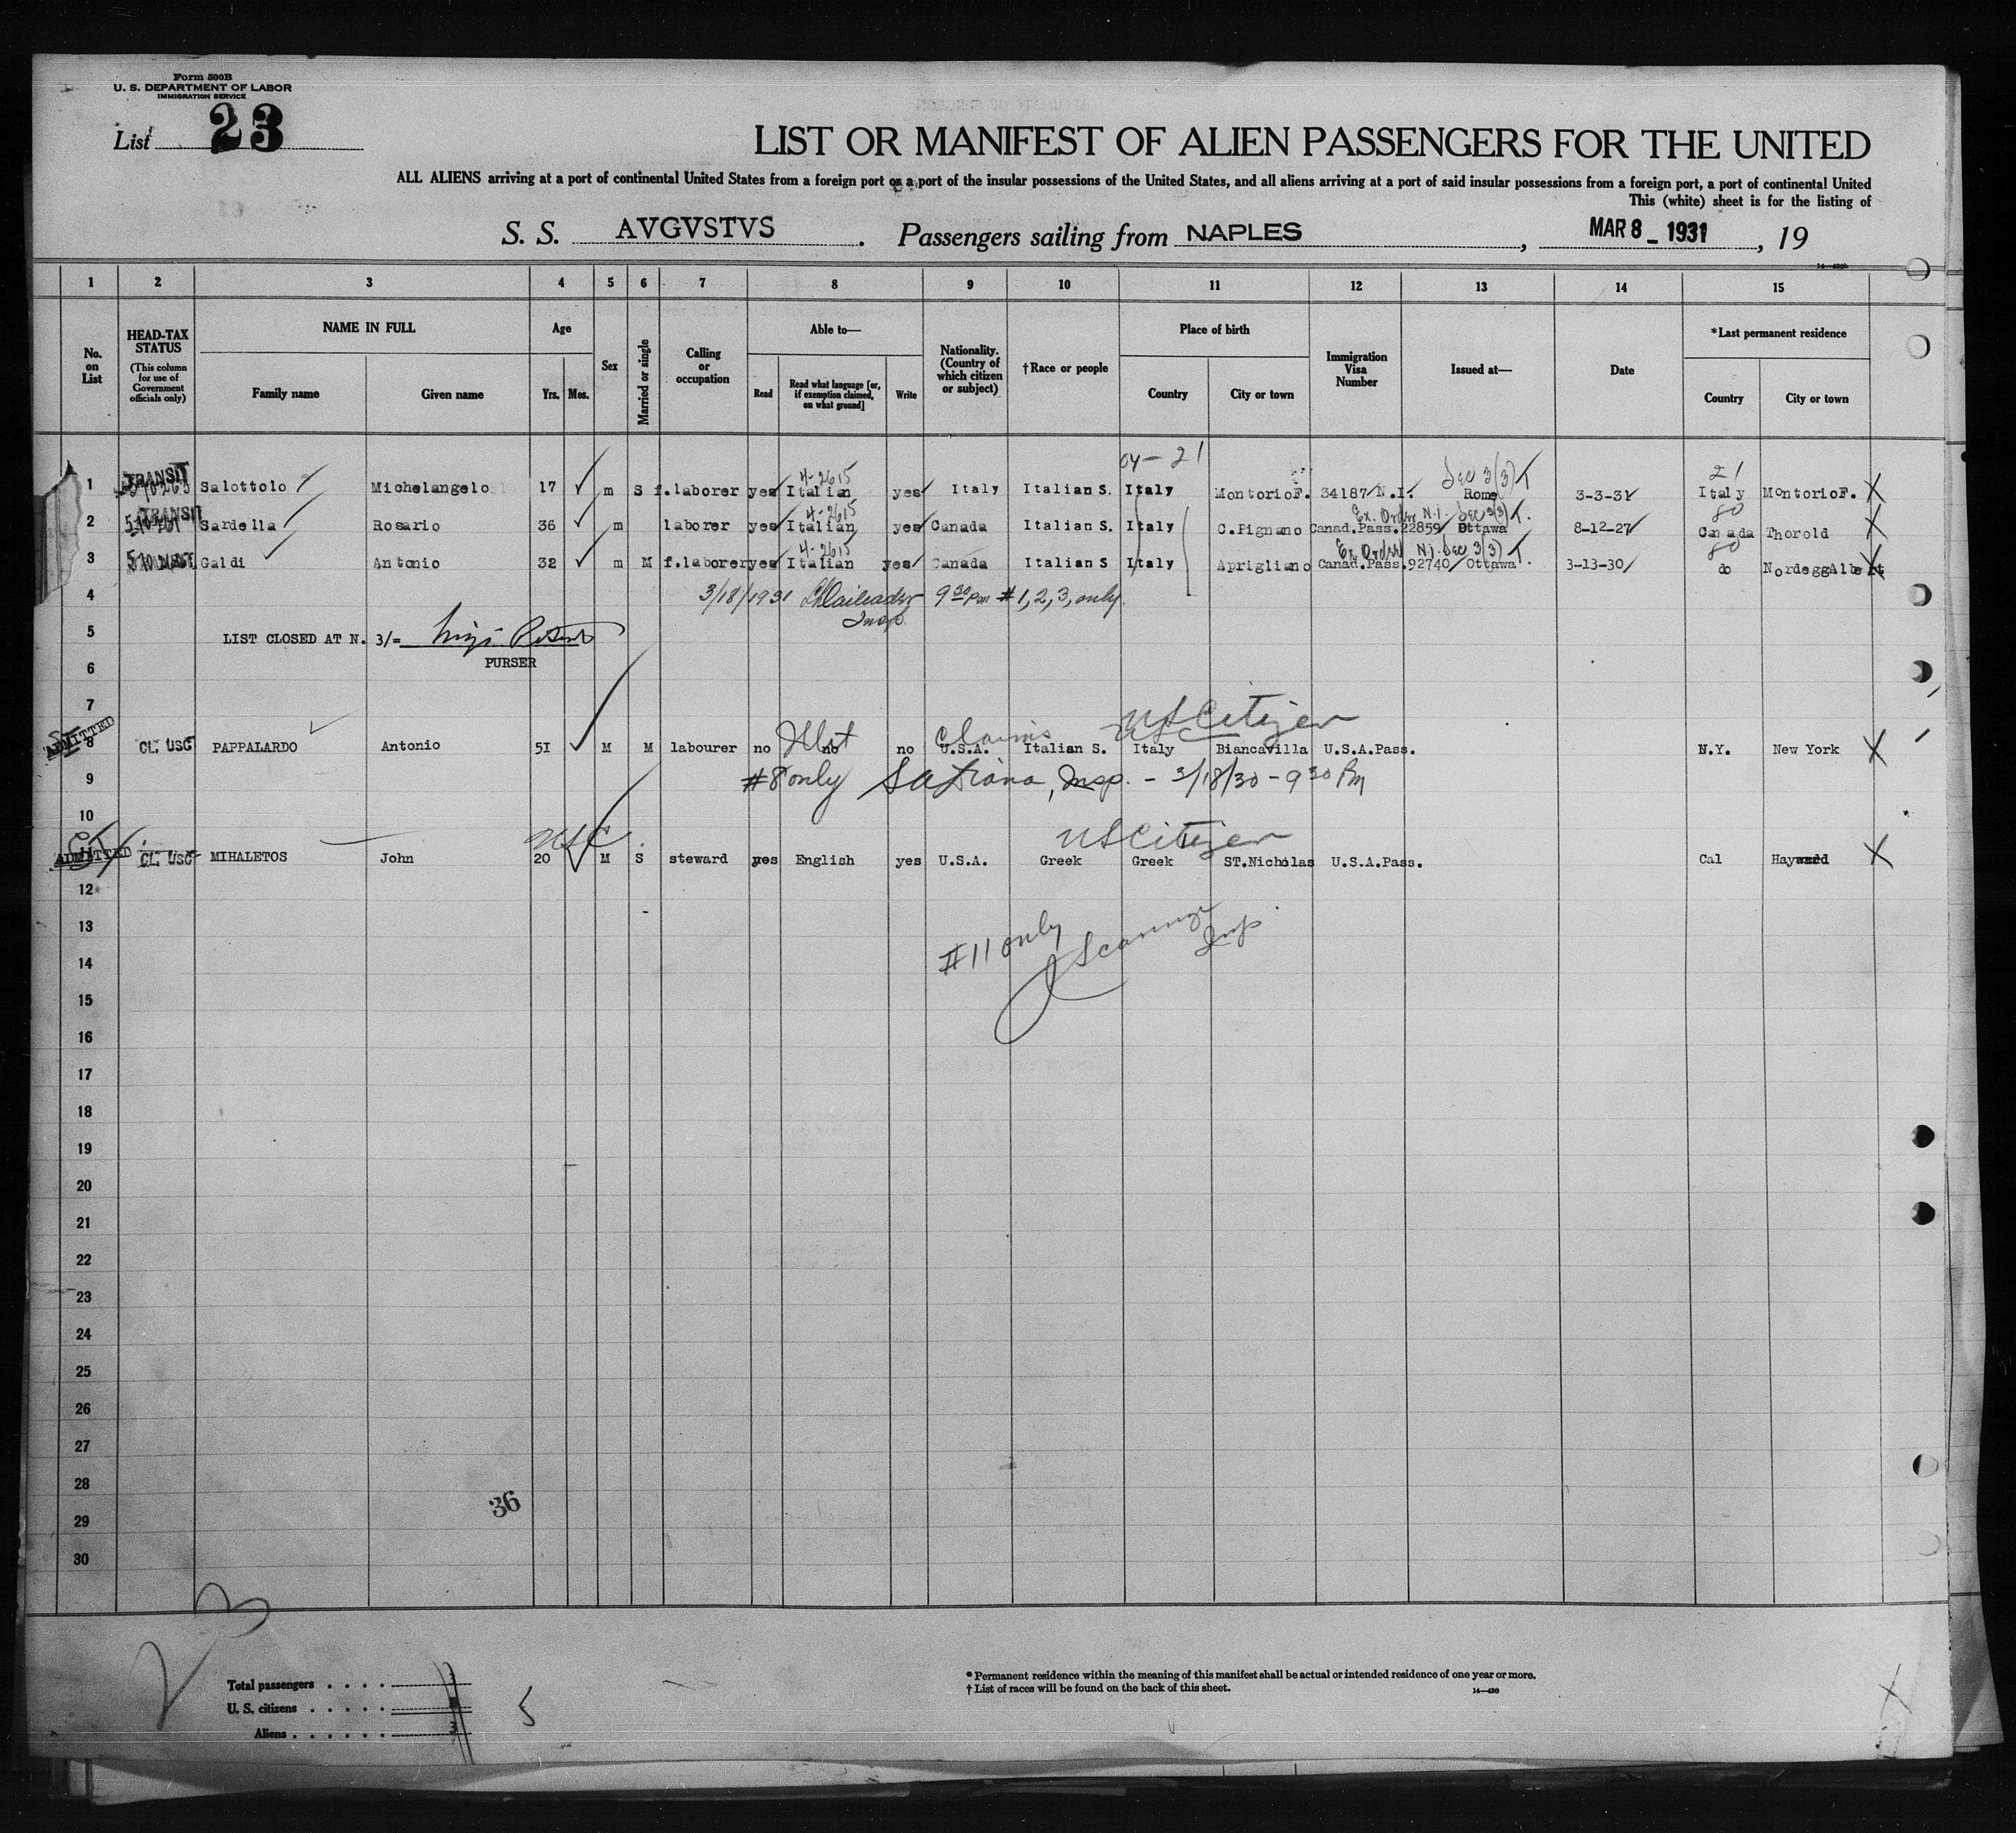 Form 500B
U. S. DEPARTMENT OF LABOR
IMMIGRATION SERVICE
List 23
LIST OR MANIFEST OF ALIEN PASSENGERS FOR THE UNITED
ALL ALIENS arriving at a port of continental United States from a foreign port or a port of the insular possessions of the United States, and all aliens arriving at a port of said insular possessions from a foreign port, a port of continental United
This (white) sheet is for the listing of
S. S. AVGVSTVS. Passengers sailing from NAPLES, MAR 8_1931, 19
1 2 3 4 5 6 7 8 9 10 11 12 13 14 15
No. on List
HEAD-TAX STATUS (This column for use of Government officials only)
NAME IN FULL Family name Given name
Age Yrs. Mos.
Sex
Married or single
Calling or occupation
Able to— Read Read what language [or, if exemption claimed, on what ground] Write
Nationality. (Country of which citizen or subject)
†Race or people
Place of birth Country City or town
Immigration Visa Number
Issued at—
Date
*Last permanent residence Country City or town
04-21
4-2615 Dec 3(3) T 21
1 TRANSIT Salottolo Michelangelo 17 m S f.laborer yes Italian yes Italy Italian S. Italy MontorioF. 34187 N.I. Rome 3-3-31 Italy MontorioF. X
4-2615 Ex. Order N.I. Dec 3(3) T. 80
2 TRANSIT Sardella Rosario 36 m laborer yes Italian yes Canada Italian S. Italy C.Pignano Canad.Pass.22859 Ottawa 8-12-27 Canada Thorold X
4-2615 Ex Order N.I. Dec 3(3) T. 80
3 Galdi Antonio 32 m M f.laborer yes Italian yes Canada Italian S Italy Aprigliano Canad.Pass.92740 Ottawa 3-13-30 do NordeggAlbert X
4 3/18/1931 9 30 Pm #1,2,3, only.
Insp.
5 LIST CLOSED AT N. 3/=
PURSER
6
7 US Citizen
8 ADMITTED CL. USC PAPPALARDO Antonio 51 M M labourer no no no Claims U.S.A. Italian S. Italy Biancavilla U.S.A.Pass. N.Y. New York X
9 #8 only Insp. - 3/18/30 - 9 30 Pm
10
USC US Citizen
ADMITTED CL. USC MIHALETOS John 20 M S steward yes English yes U.S.A. Greek Greek ST.Nicholas U.S.A.Pass. Cal Hayward X
12
13 #11 only
Insp
14
15
16
17
18
19
20
21
22
23
24
25
26
27
28
36
29
30
23
Total passengers . . . . 3
U. S. citizens . . . . .
Aliens . . . . . . 3
5
* Permanent residence within the meaning of this manifest shall be actual or intended residence of one year or more.
† List of races will be found on the back of this sheet.
14—430
X